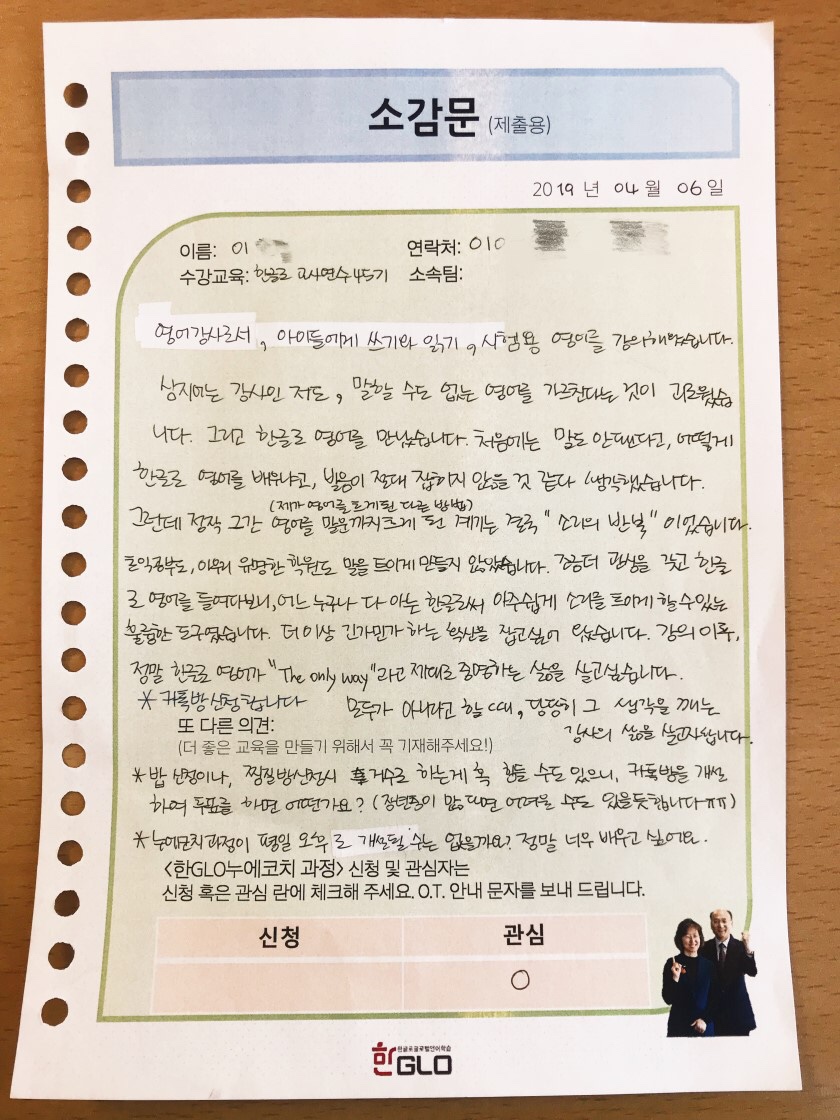 소감문 (제출용)
2019년 04월 06일
이름: 이
연락처: 010
수강교육: 한글로 교사연수 45기
소속팀:
영어강사로서, 아이들에게 쓰기와 읽기, 시험용 영어를 강의해왔습니다.
심지어는 강사인 저도, 말할 수도 없는 영어를 가르친다는 것이 괴로웠습
니다. 그리고 한글로 영어를 만났습니다. 처음에는 말도 안된다고, 어떻게
한글로 영어를 배우냐고, 발음이 절대 잡히지 않을 것 같다 생각했습니다.
(제가 영어를 트게된 다른 방법)
그런데 정작 그간 영어를 말문까지 트게 된 계기는 결국 "소리의 반복" 이었습니다.
토익공부도, 아무리 유명한 학원도 말을 트이게 만들지 않았습니다. 조금더 관심을 갖고 한글
로 영어를 들여다보니, 어느 누구나 다 아는 한글로써 아주쉽게 소리를 트이게 할 수 있는
훌륭한 도구였습니다. 더 이상 긴가민가 하는 확신을 잡고싶어 왔습니다. 강의 이후,
정말 한글로 영어가 "The only way"라고 제대로 증명하는 삶을 살고싶습니다.
* 카톡방신청합니다
모두가 아니라고 할 때, 당당히 그 생각을 깨는
강사의 삶을 살고자합니다.
또 다른 의견:
(더 좋은 교육을 만들기 위해서 꼭 기재해주세요!)
* 밥 신청이나, 찜질방신청시 거수로 하는게 혹 힘들 수도 있으니, 카톡방을 개설
하여 투표를 하면 어떤가요? (장년층이 많다면 어려울 수도 있을듯합니다ㅠㅠ)
* 누에코치과정이 평일 오후로 개설될 수는 없을까요? 정말 너무 배우고 싶어요.
<한GLO누에코치 과정> 신청 및 관심자는
신청 혹은 관심 란에 체크해 주세요. O.T. 안내 문자를 보내 드립니다.
신청 관심
○
한글로글로벌언어학습
한GLO